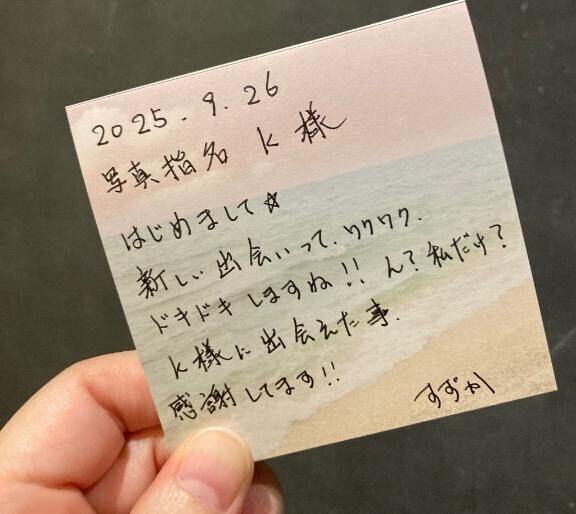 2025.9.26
写真指名 K様
はじめまして☆
新しい出会いって、ワクワク、
ドキドキしますね!! ん?私だけ?
K様に出会えた事、
感謝してます!!
すずか